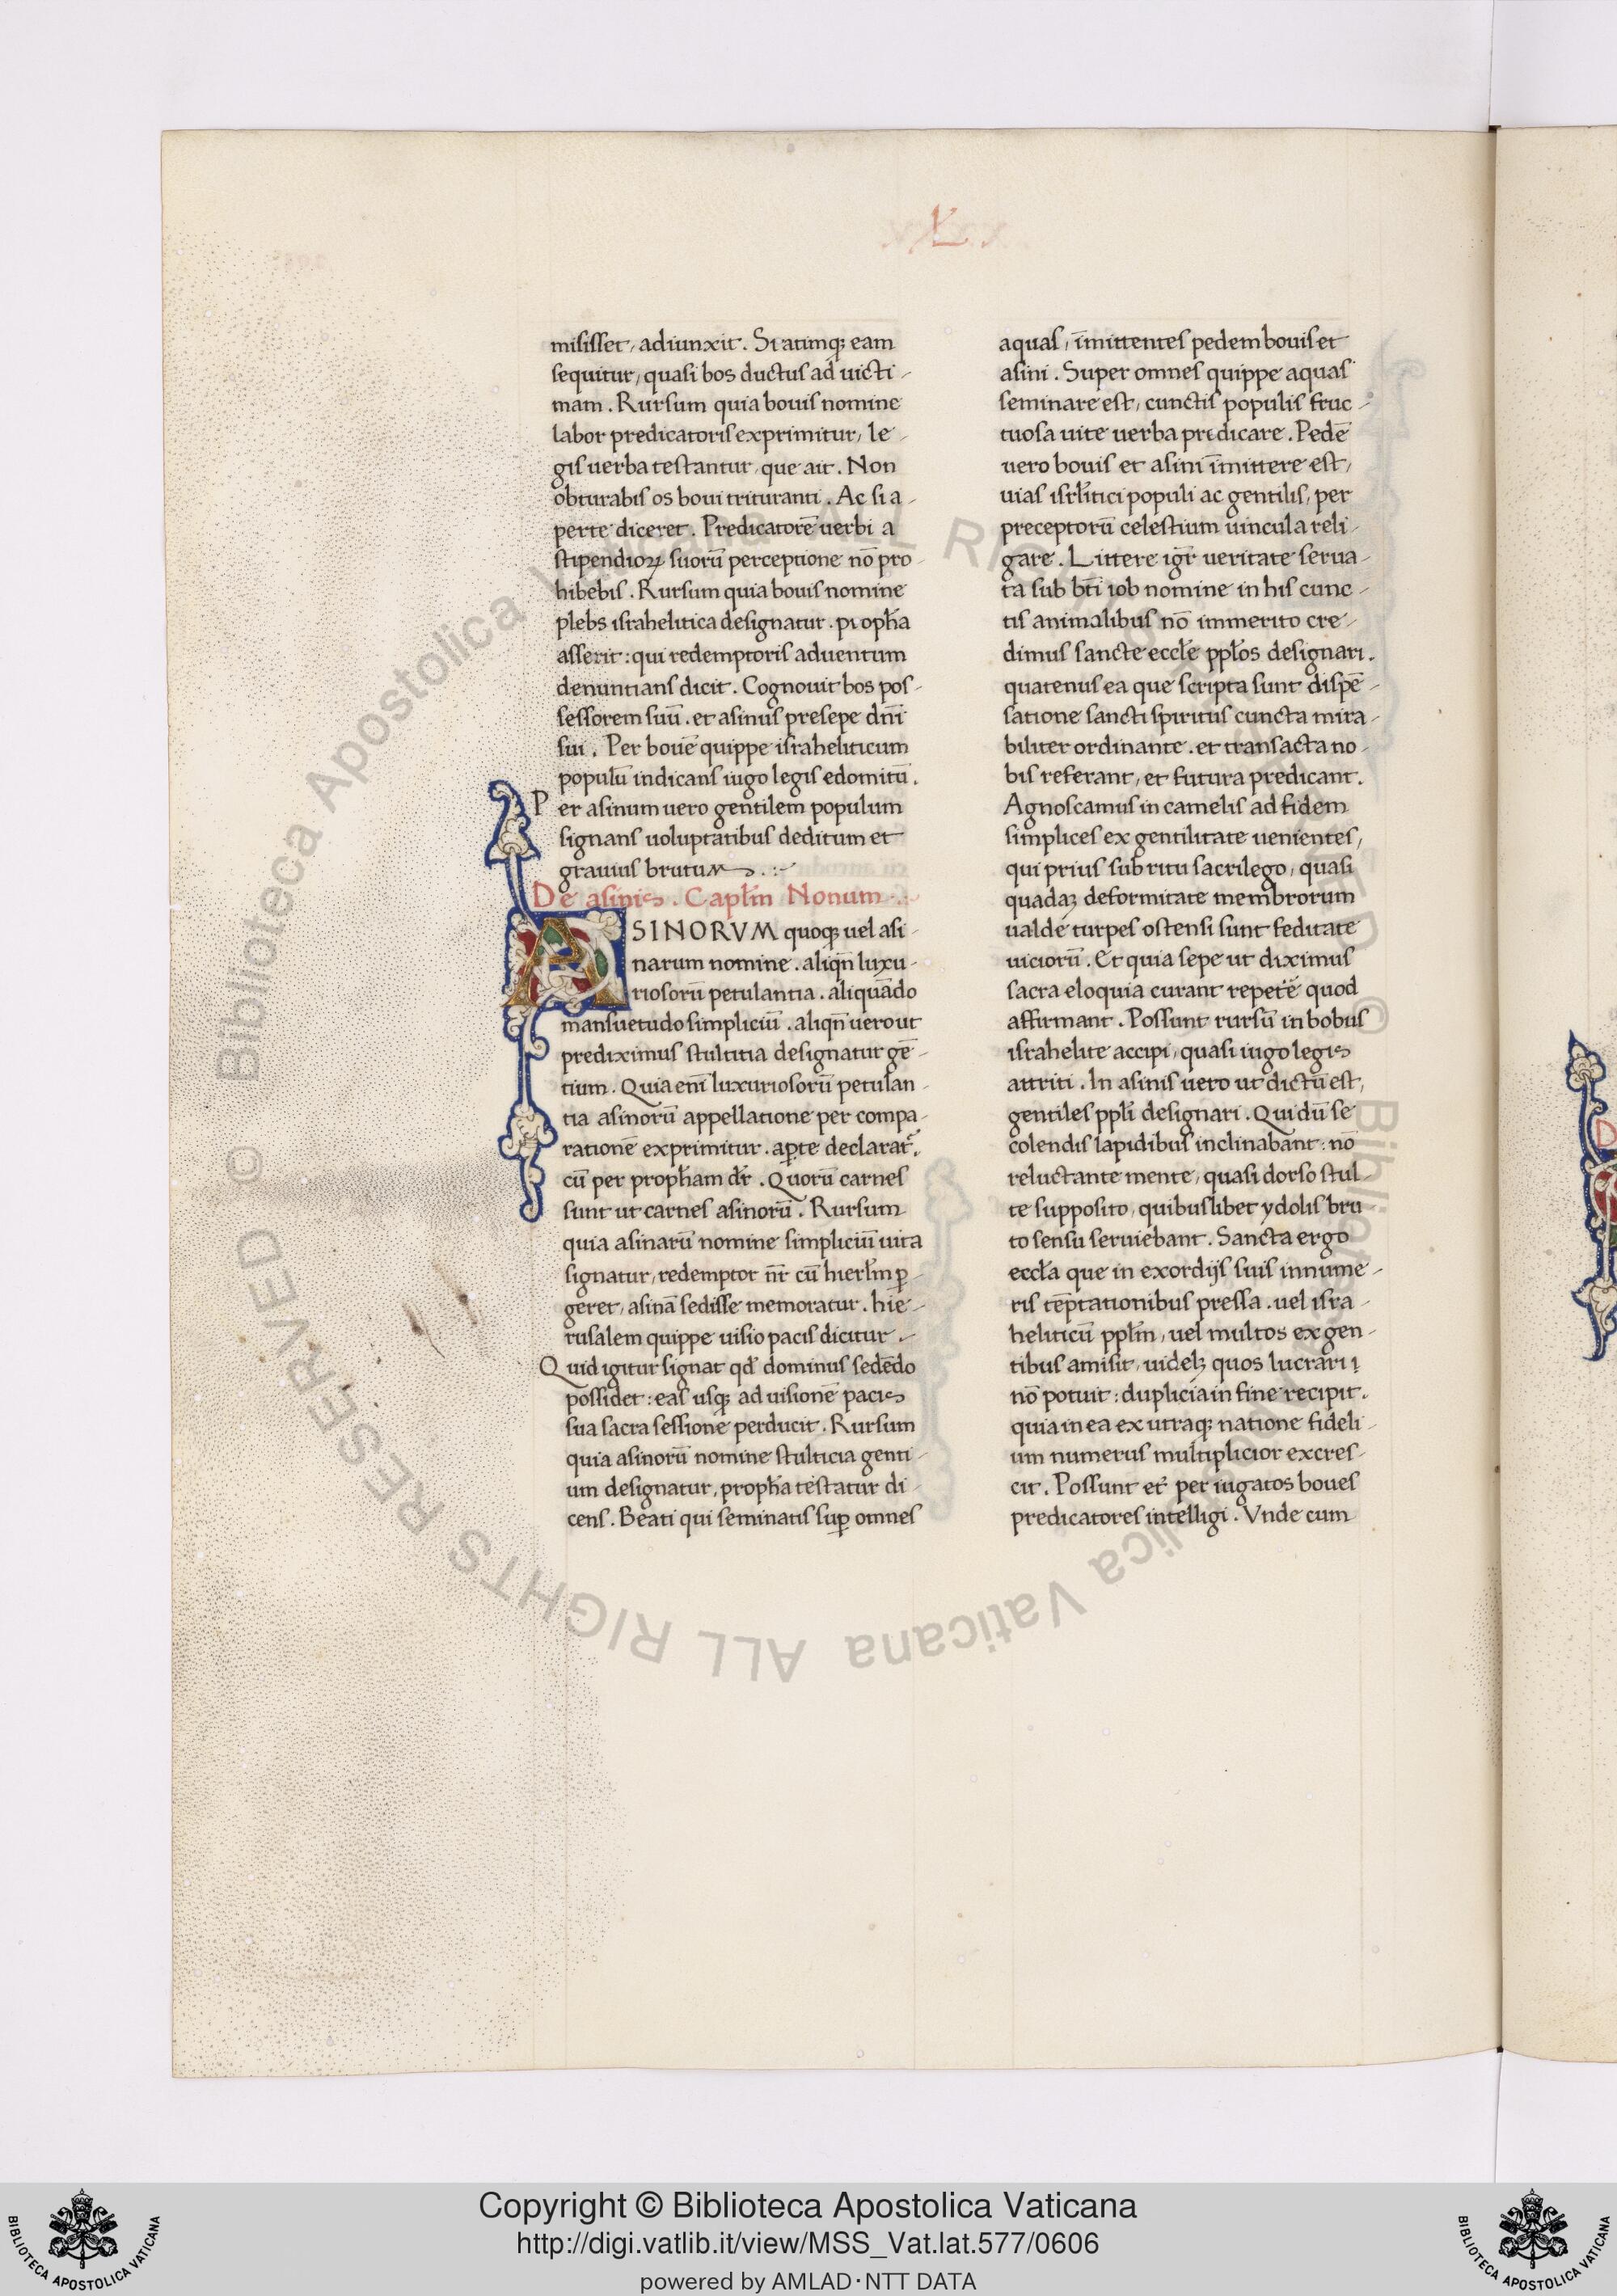 .L.
misisset, adiunxit. Statimq; eam
sequitur, quasi bos ductus ad uicti-
mam. Rursum quia bouis nomine
labor predicatoris exprimitur, le-
gis uerba testantur, que ait. Non
obturabis os boui trituranti. Ac si a-
perte diceret. Predicatorē uerbi a
stipendioꝝ suorū perceptione nō pro-
hibebis. Rursum quia bouis nomine
plebs israhelitica designatur. propħa
asserit: qui redemptoris aduentum
denuntians dicit. Cognouit bos pos-
sessorem suū. et asinus presepe dn̄i
sui. Per bouē quippe israheliticum
populū indicans iugo legis edomitū.
Per asinum uero gentilem populum
signans uoluptatibus deditum et
grauius brutum.
De asinis. Capłm Nonum.
ASINORVM quoq; uel asi-
narum nomine. aliqn̄ luxu-
riosorū petulantia. aliquādo
mansuetudo simpliciū. aliqn̄ uero ut
prediximus stultitia designatur gē-
tium. Quia enī luxuriosorū petulan-
tia asinorū appellatione per compa-
rationē exprimitur. aꝑte declarat᷑.
cū per propħam dr̄. Quorū carnes
sunt ut carnes asinorū. Rursum
quia asinarū nomine simpliciū uita
signatur, redemptor nr̄ cū hierłm ꝑ-
geret, asinā sedisse memoratur. hie-
rusalem quippe uisio pacis dicitur.
Quid igitur signat qd̄ dominus sedēdo
possidet: eas usq; ad uisionē pacis
sua sacra sessione perducit. Rursum
quia asinorū nomine stulticia genti-
um designatur, propħa testatur di-
cens. Beati qui seminatis suꝑ omnes
aquas, īmittentes pedem bouis et
asini. Super omnes quippe aquas
seminare est, cunctis populis fruc-
tuosa uite uerba predicare. Pedē
uero bouis et asini īmittere est,
uias isrłitici populi ac gentilis, per
preceptorū celestium uincula reli-
gare. Littere igr̄ ueritate serua-
ta sub bt̄i iob nomine in his cunc-
tis animalibus nō immerito cre-
dimus sancte eccłe ppłos designari.
quatenus ea que scripta sunt dispē-
satione sancti spiritus cuncta mira-
biliter ordinante. et transacta no-
bis referant, et futura predicant.
Agnoscamus in camelis ad fidem
simplices ex gentilitate uenientes,
qui prius sub ritu sacrilego, quasi
quadaꝫ deformitate membrorum
ualde turpes ostensi sunt feditate
uiciorū. Et quia sepe ut diximus
sacra eloquia curant repetē quod
affirmant. Possunt rursū in bobus
israhelite accipi, quasi iugo legis
attriti. In asinis uero ut dictū est,
gentiles ppłi designari. Qui dū se
colendis lapidibus inclinabant: nō
reluctante mente, quasi dorso stul-
te supposito, quibuslibet ydolis bru
to sensu seruiebant. Sancta ergo
eccła que in exordijs suis innume-
ris tēptationibus pressa. uel isra-
heliticū ppłm, uel multos ex gen-
tibus amisit, uidelꝫ quos lucrari
nō potuit: duplicia in fine recipit.
quia in ea ex utraq; natione fideli-
um numerus multiplicior excres-
cit. Possunt et̄ per iugatos boues
predicatores intelligi. Vnde cum
© Biblioteca Apostolica Vaticana ALL RIGHTS RESERVED © Biblioteca Apostolica Vaticana ALL RIGHTS RESERVED
Copyright © Biblioteca Apostolica Vaticana
http://digi.vatlib.it/view/MSS_Vat.lat.577/0606
powered by AMLAD·NTT DATA
BIBLIOTECA APOSTOLICA VATICANA
BIBLIOTECA APOSTOLICA VATICANA